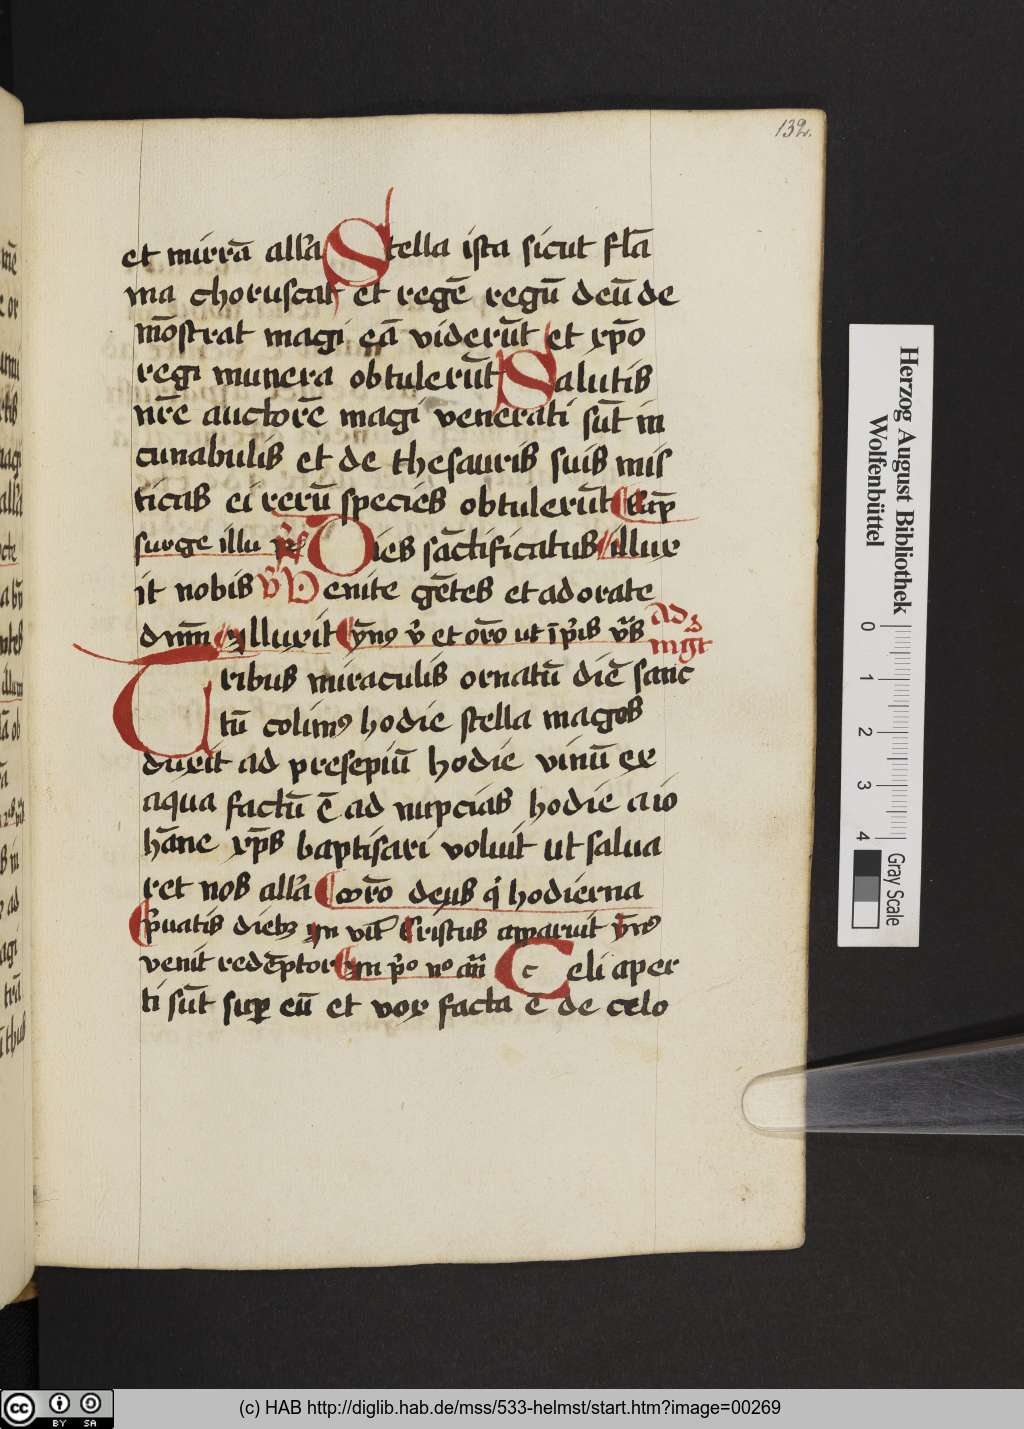 132.
et mirrā all'a Stella ista sicut fla̅
ma choruscat et regē regū deū de
mōstrat magi eā viderūt et xp̄o
regi munera obtulerūt Salutis
nr̄e auctorē magi venerati sūt in
cunabulis et de thesauris suis mis
ticas ei rerū species obtulerūt Cap̄
surge illu Dies sāctificatus illux
it nobis V̄ Venite gētes et adorate
dnm̄ Illuxit ymnꝯ v̄ et or̄o ut ī p̄is vr̄s
Ad
mgt
Tribus miraculis ornatū diē sanc
tū colimꝯ hodie stella magos
duxit ad presepiū hodie vinū ex
aqua factū ē ad nupcias hodie a io
hāne xp̄s baptisari voluit ut salua
ret nos all'a or̄o deus q̇ hodierna
Pͥuatis diebꝫ In vit̄ Cristus aparuit ymꝯ
venit redēptor In pͦ nͦ an̄ Celi aper
ti sūt suꝑ eū et vox facta ē de celo
Herzog August Bibliothek
Wolfenbüttel
0 1 2 3 4
Gray Scale
(c) HAB http://diglib.hab.de/mss/533-helmst/start.htm?image=00269
cc BY SA